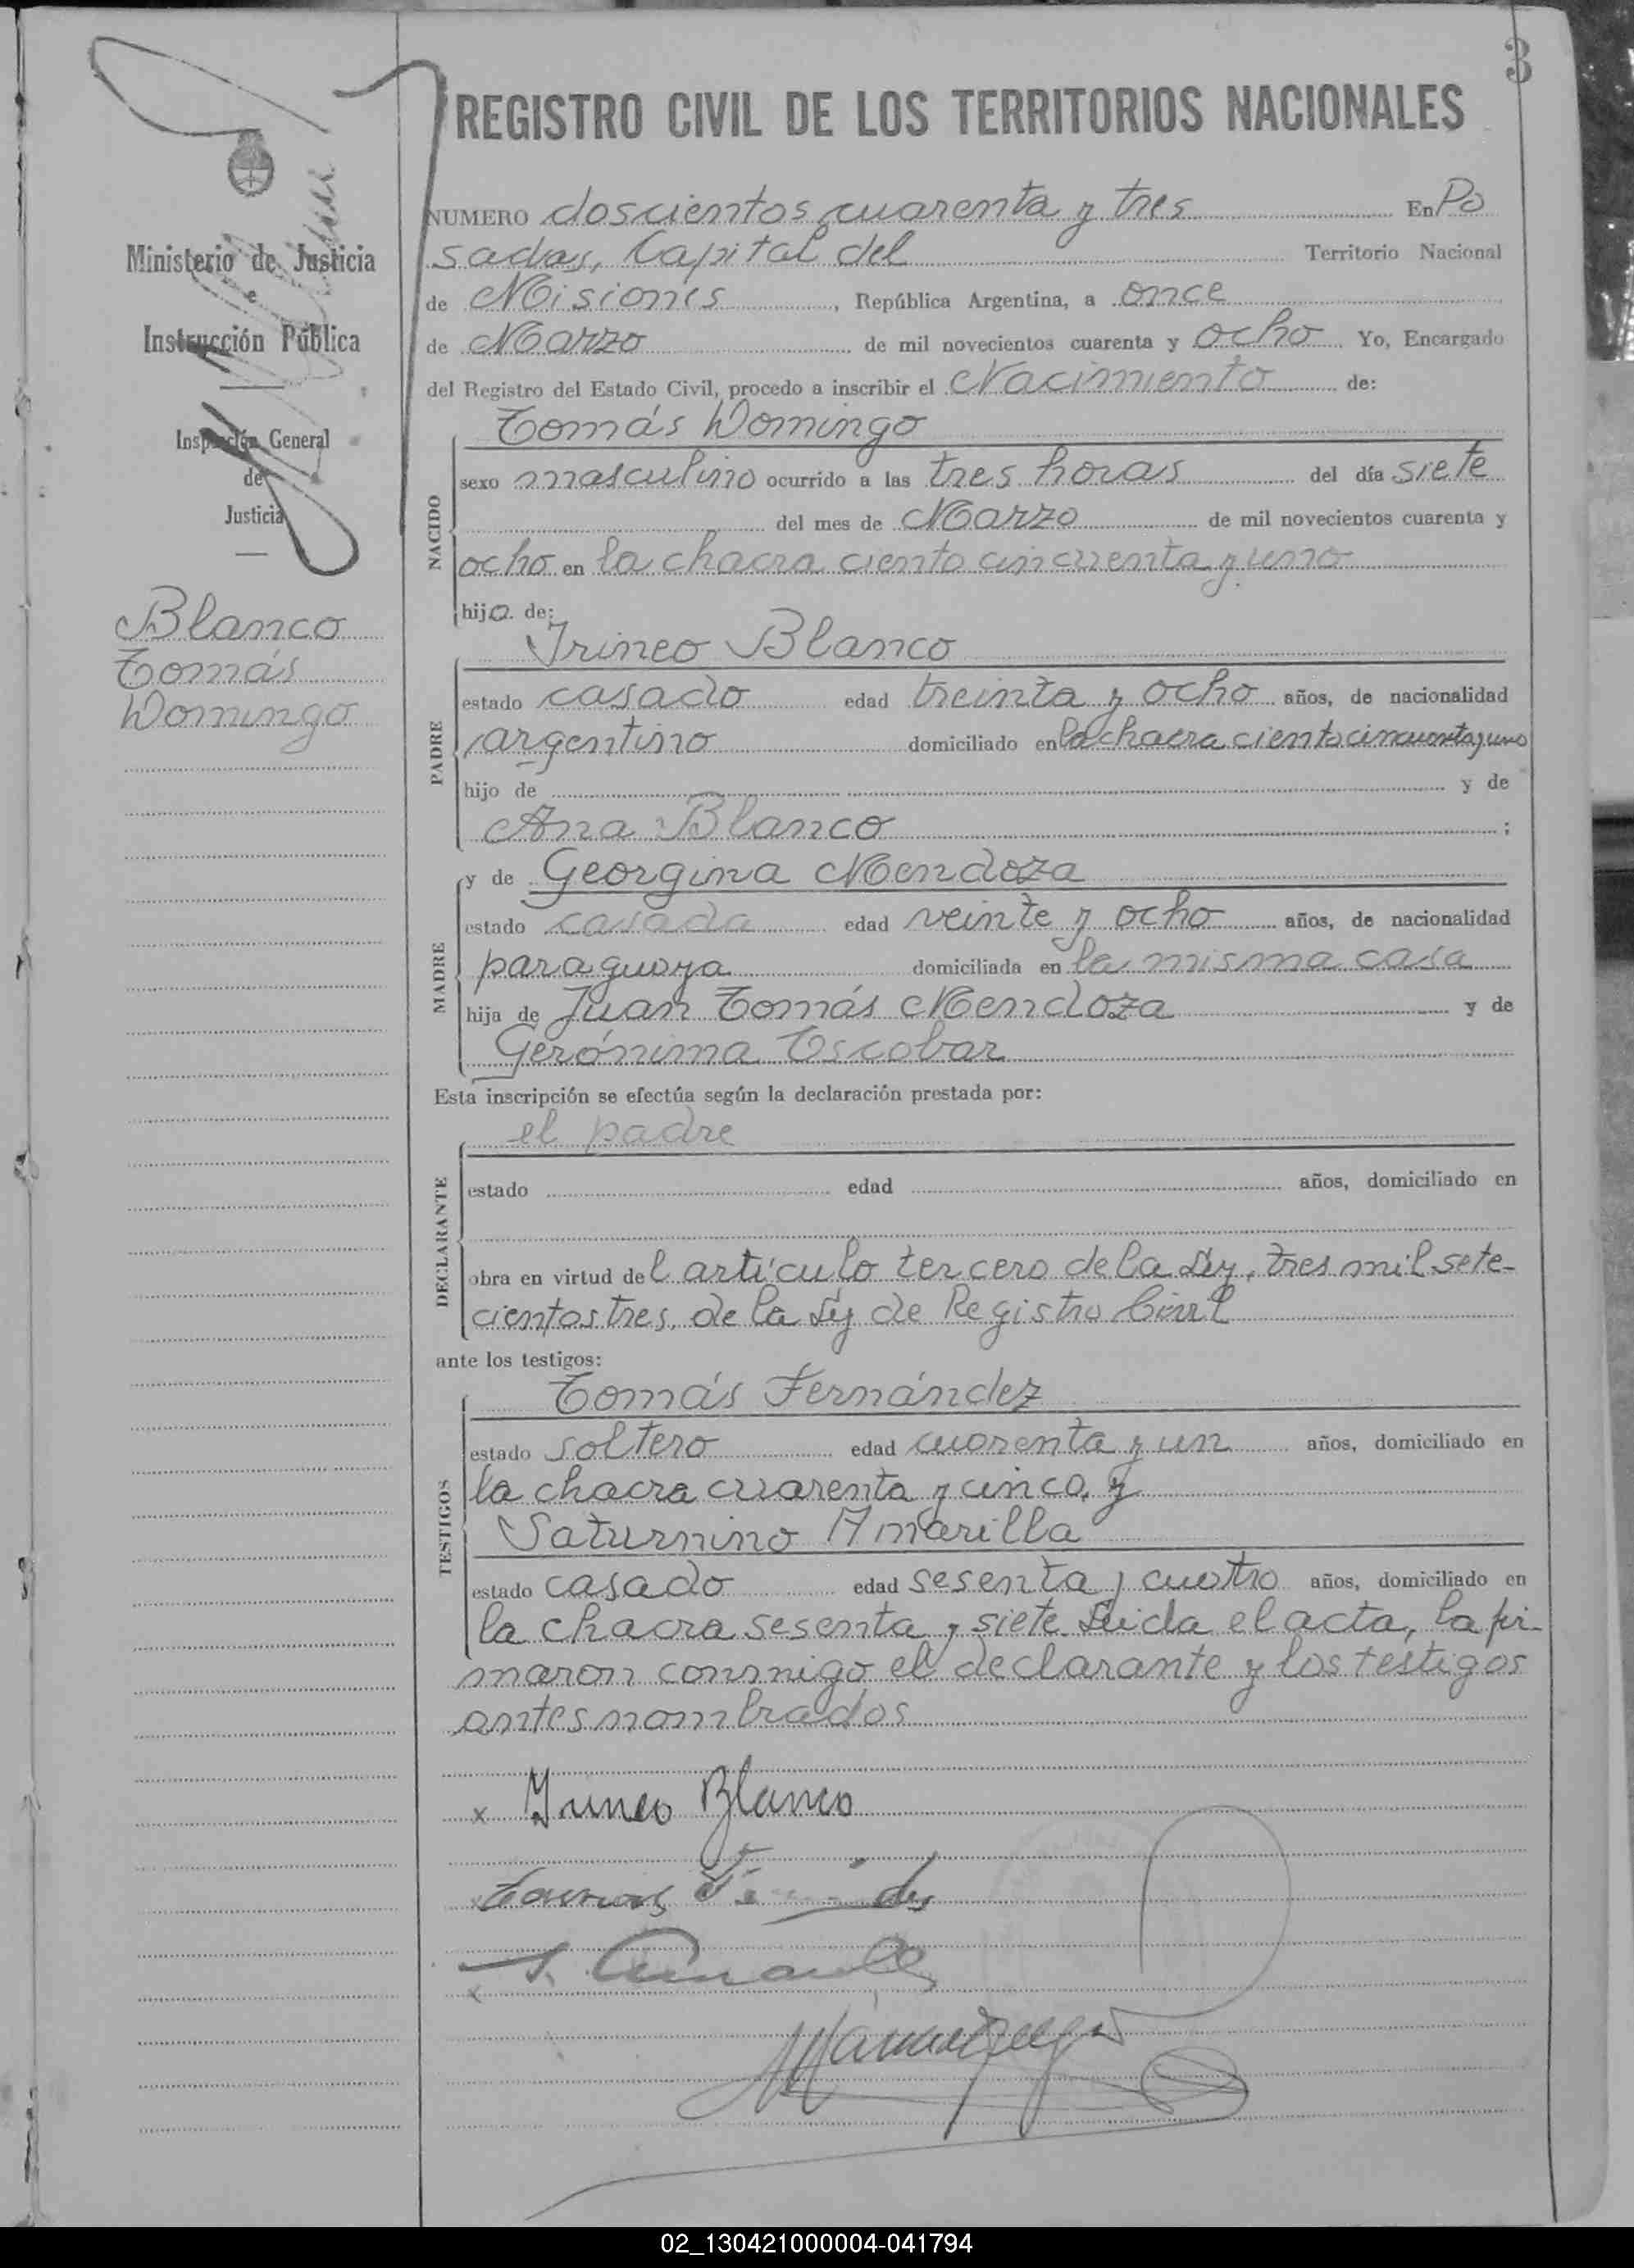 3
REGISTRO CIVIL DE LOS TERRITORIOS NACIONALES
Ministerio de Justicia
e
Instrucción Pública
Inspección General
de
Justicia
Blanco
Tomás
Domingo
NUMERO doscientos cuarenta y tres En Po
sadas, Capital del Territorio Nacional
de Misiones, República Argentina, a once
de Marzo de mil novecientos cuarenta y ocho Yo, Encargado
del Registro del Estado Civil, procedo a inscribir el Nacimiento de:
NACIDO
Tomás Domingo
sexo masculino ocurrido a las tres horas del día siete
del mes de Marzo de mil novecientos cuarenta y
ocho en la chacra ciento cincuenta y uno
hijo de:
PADRE
Irineo Blanco
estado casado edad treinta y ocho años, de nacionalidad
argentino domiciliado en la chacra ciento cincuenta y uno
hijo de y de
Ana Blanco ;
MADRE
y de Georgina Mendoza
estado casada edad veinte y ocho años, de nacionalidad
paraguaya domiciliada en la misma casa
hija de Juan Tomás Mendoza y de
Gerónima Escobar
Esta inscripción se efectúa según la declaración prestada por:
DECLARANTE
el padre
estado edad años, domiciliado en
obra en virtud del artículo tercero de la Ley, tres mil sete-
cientos tres, de la Ley de Registro Civil
ante los testigos:
TESTIGOS
Tomás Fernández
estado soltero edad cuarenta y un años, domiciliado en
la chacra cuarenta y cinco, y
Saturnino Amarilla
estado casado edad sesenta y cuatro años, domiciliado en
la chacra sesenta y siete. Leida el acta, la fir-
maron conmigo el declarante y los testigos
antes nombrados
x Yrineo Blanco
x
S. Amarilla
x
02_130421000004-041794